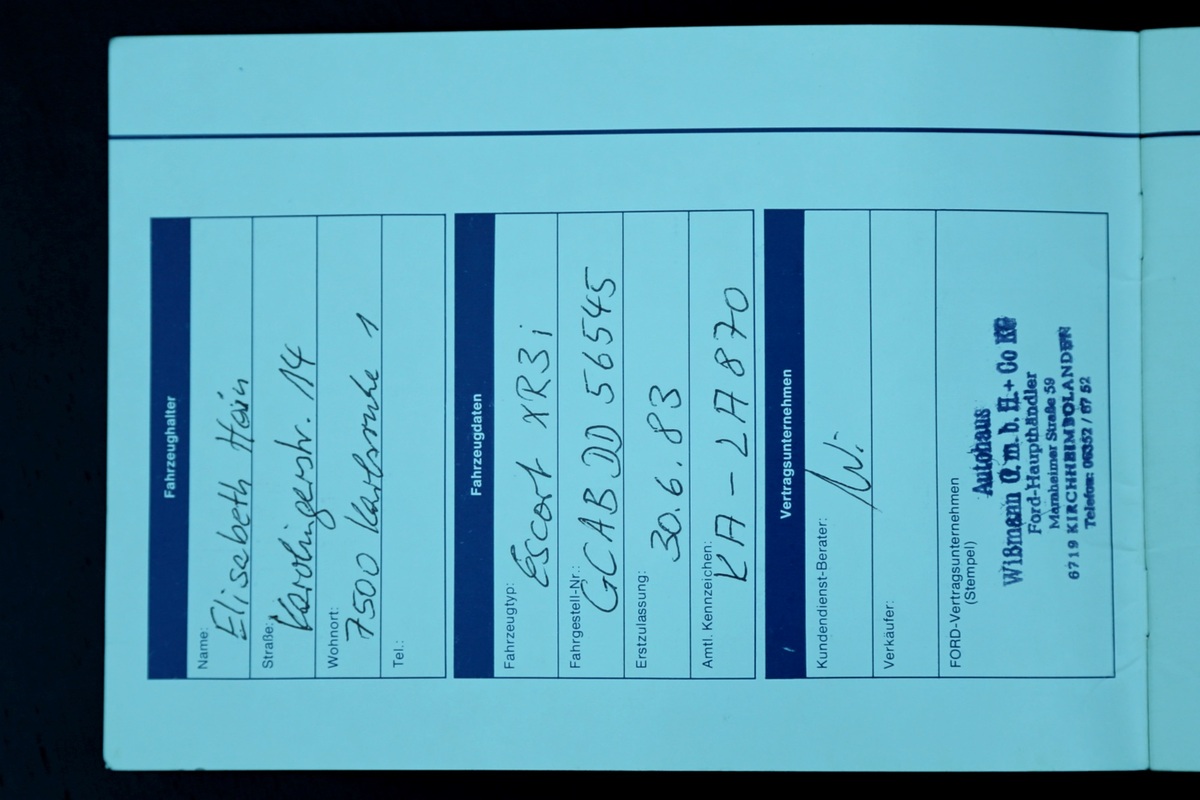 Fahrzeughalter
Name: Elisabeth Hain
Straße: Karolingerstr. 14
Wohnort: 7500 Karlsruhe 1
Tel.:
Fahrzeugdaten
Fahrzeugtyp: Escort XR3i
Fahrgestell-Nr.: GCAB DD 56545
Erstzulassung: 30.6.83
Amtl. Kennzeichen: KA-LA870
Vertragsunternehmen
Kundendienst-Berater:
Verkäufer:
FORD-Vertragsunternehmen
(Stempel)
Autohaus
Wißmann G.m.b.H.+Co KG
Ford-Haupthändler
Marnheimer Straße 59
6719 KIRCHHEIMBOLANDEN
Telefon: 06352 / 67 52